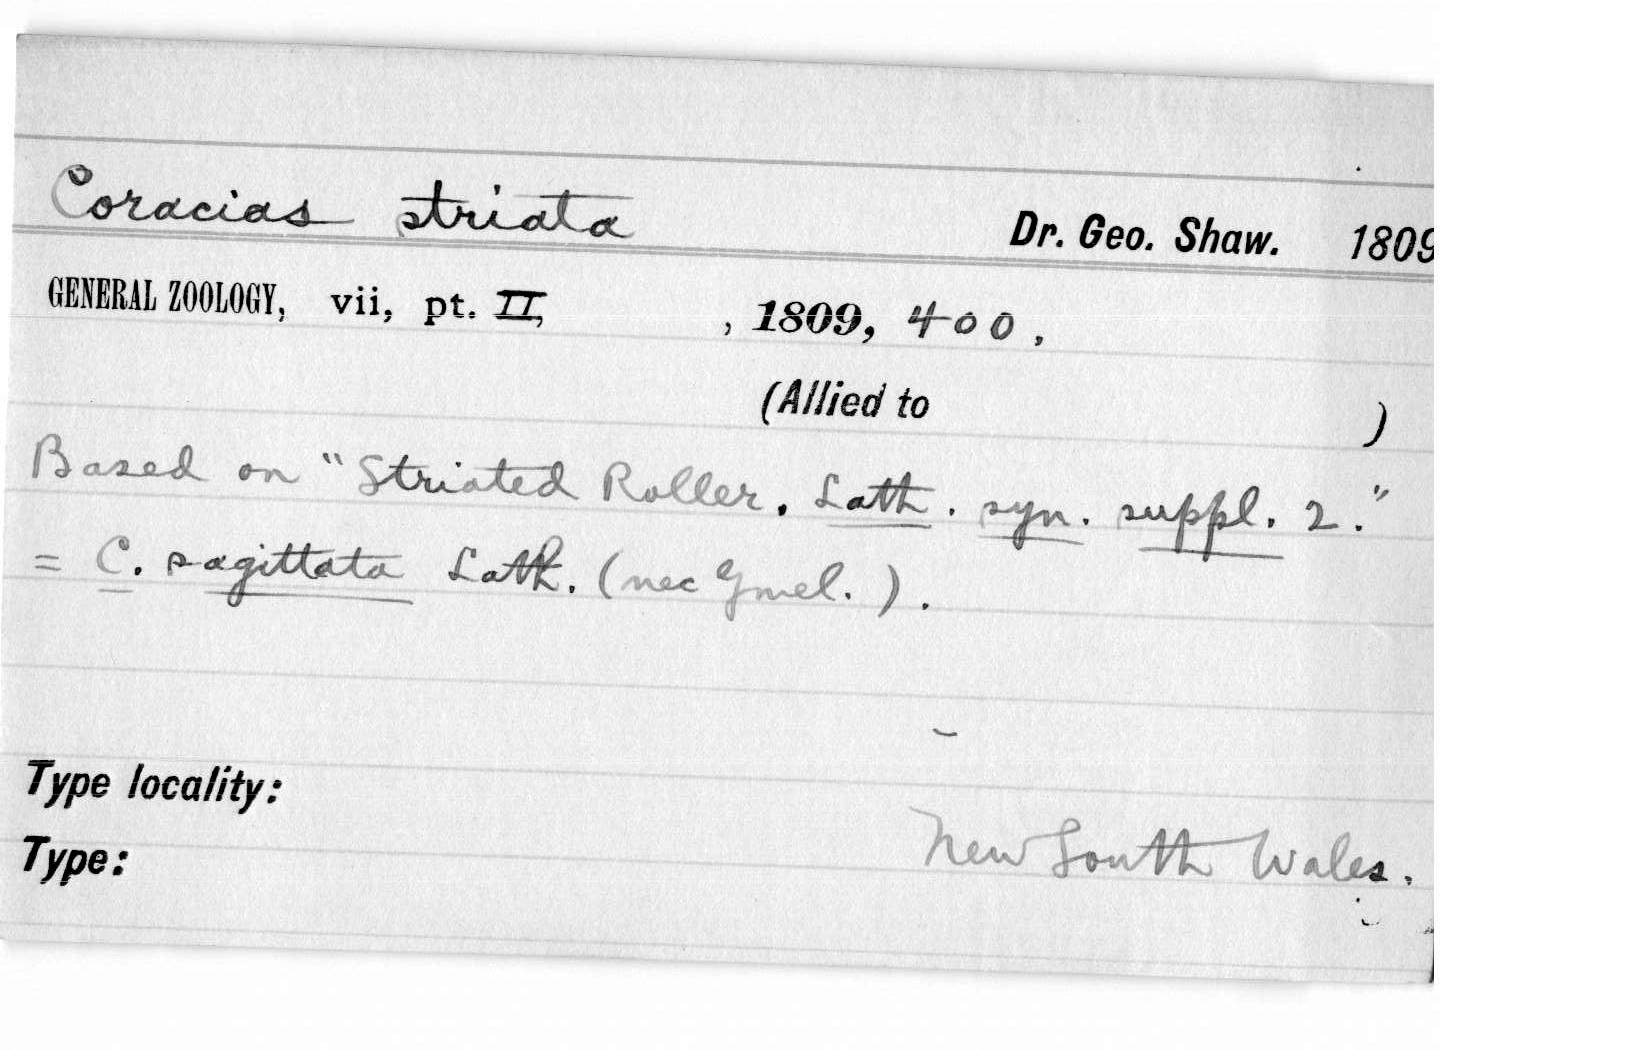 Coracias striata Dr. Geo. Shaw. 1809
GENERAL ZOOLOGY, vii, pt. II, , 1809, 400,
(Allied to )
Based on "Striated Roller, Lath. syn. suppl. 2."
= C. sagittata Lath. (nec Gmel.).
Type locality:
New South Wales.
Type: